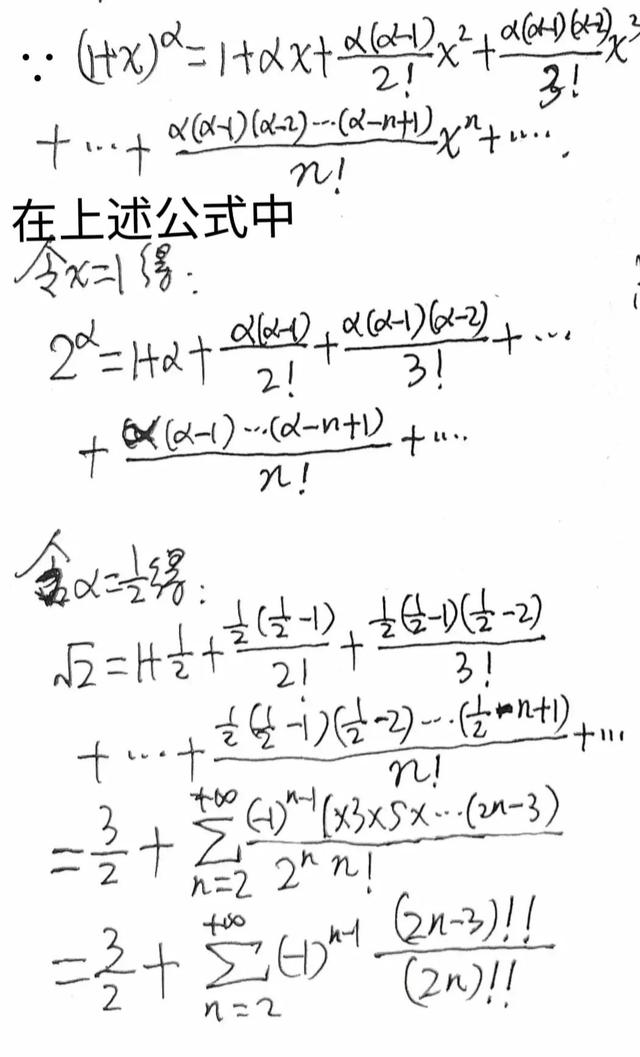 ∵ (1+x)^α = 1+αx+ α(α-1)/2! x² + α(α-1)(α-2)/3! x³
+ ··· + α(α-1)(α-2)···(α-n+1)/n! xⁿ + ····.
在上述公式中
令x=1得:
2^α = 1+α+ α(α-1)/2! + α(α-1)(α-2)/3! + ···
+ α(α-1)···(α-n+1)/n! + ····
令α=1/2得:
√2 = 1+ 1/2 + 1/2(1/2-1)/2! + 1/2(1/2-1)(1/2-2)/3!
+ ··· + 1/2(1/2-1)(1/2-2)···(1/2-n+1)/n! + ···
= 3/2 + ∑_{n=2}^{+∞} (-1)^{n-1} 1×3×5×···(2n-3)/2ⁿ n!
= 3/2 + ∑_{n=2}^{+∞} (-1)^{n-1} (2n-3)!!/(2n)!!